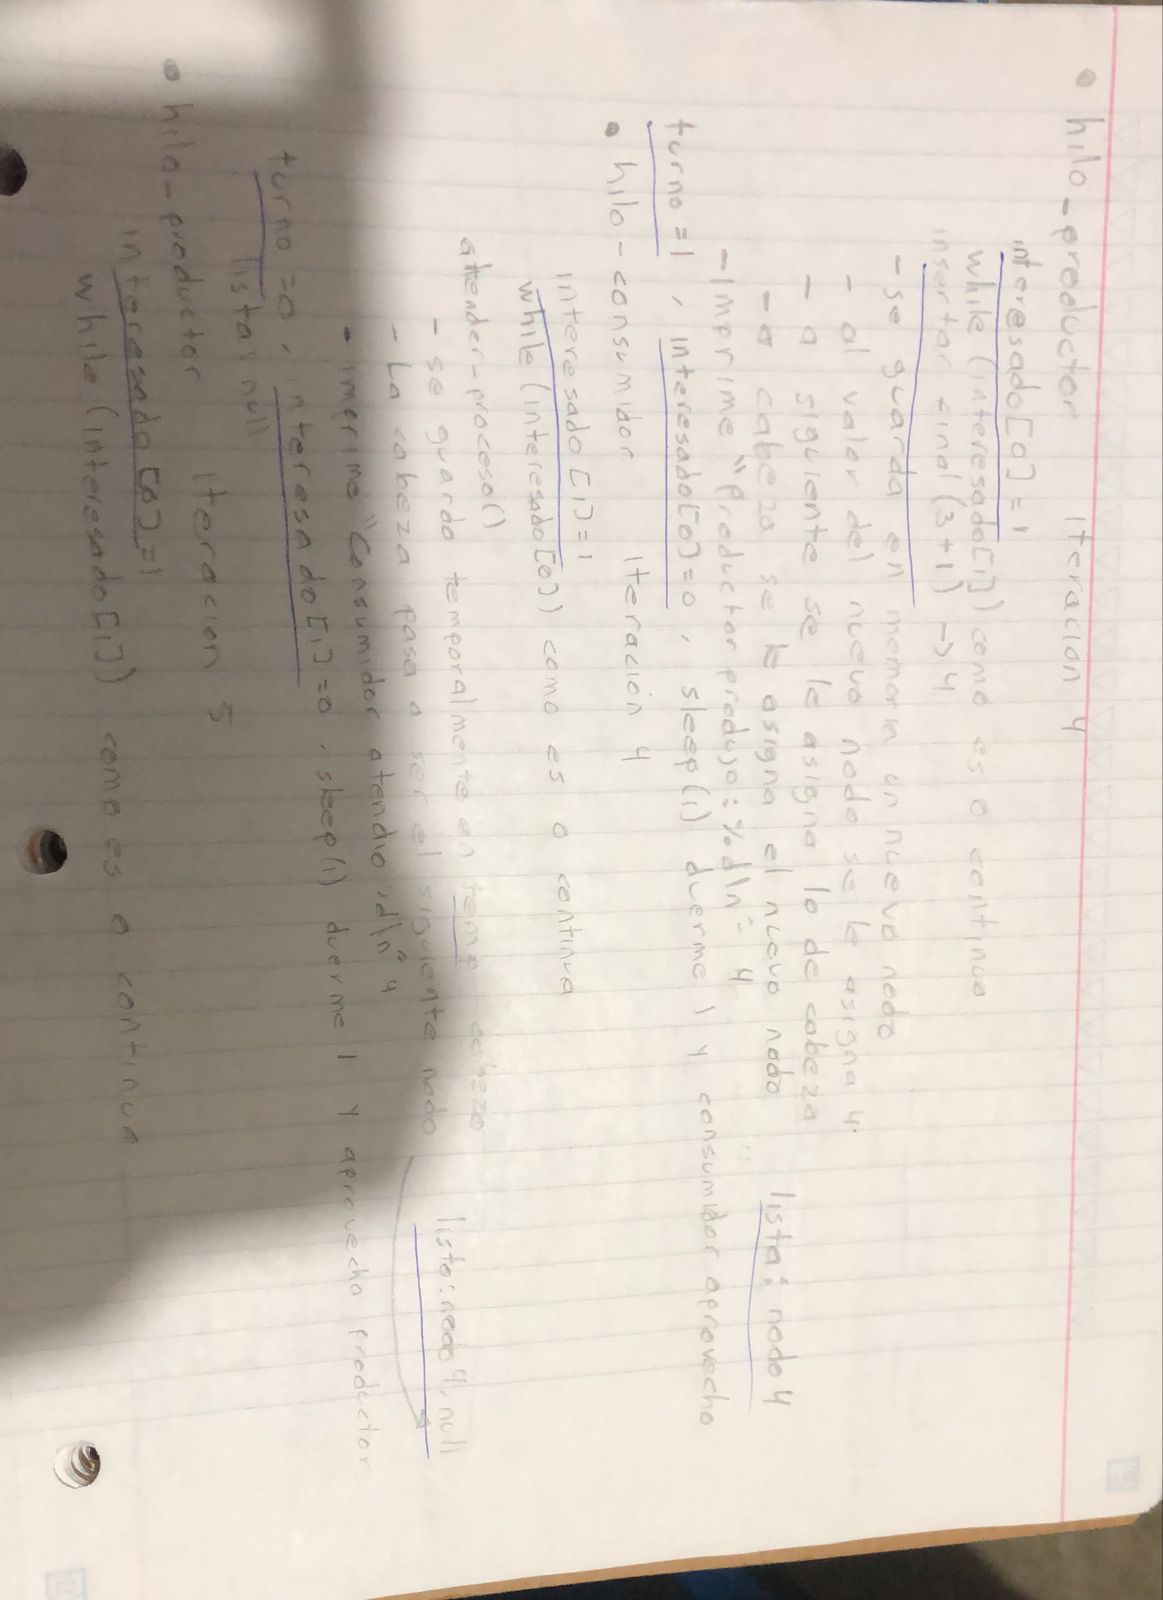 • hilo-productor Iteracion 4
interesado[0]=1
while (interesado[1]) como es 0 continua
insertar_final(3+1) -> 4
- se guarda en memoria un nuevo nodo
- al valor del nuevo nodo se le asigna 4.
- a siguiente se le asigna lo de cabeza
- a cabeza se le asigna el nuevo nodo lista: nodo4
- imprime "Productor produjo: %d\n" 4
turno=1, interesado[0]=0, sleep(1) duerme 1 y consumidor aprovecha
• hilo-consumidor Iteración 4
interesado[1]=1
while (interesado[0]) como es 0 continua
atender-proceso()
- se guarda temporalmente en temp cabeza
- La cabeza pasa a ser el siguiente nodo lista: nodo4, null
• imprime "Consumidor atendio: d\n" 4
turno=0, interesado[1]=0, sleep(1) duerme 1 y aprovecha productor
lista: null
• hilo-productor Iteracion 5
interesado[0]=1
while (interesado[1]) como es 0 continua